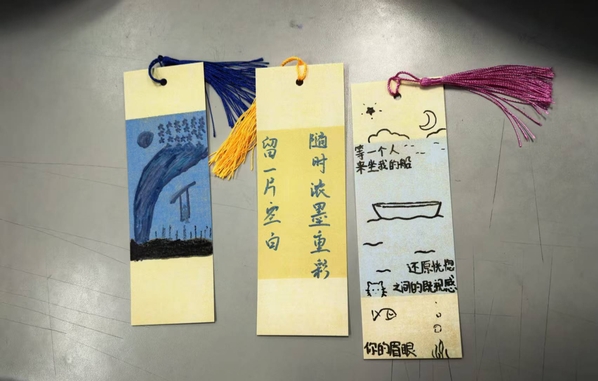 随时浓墨重彩
留一片空白
等一个人
来坐我的船
还原恍惚
之间的既视感
你的眉眼